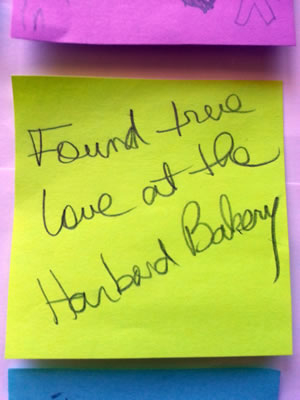 Found true
love at the
Harbord Bakery